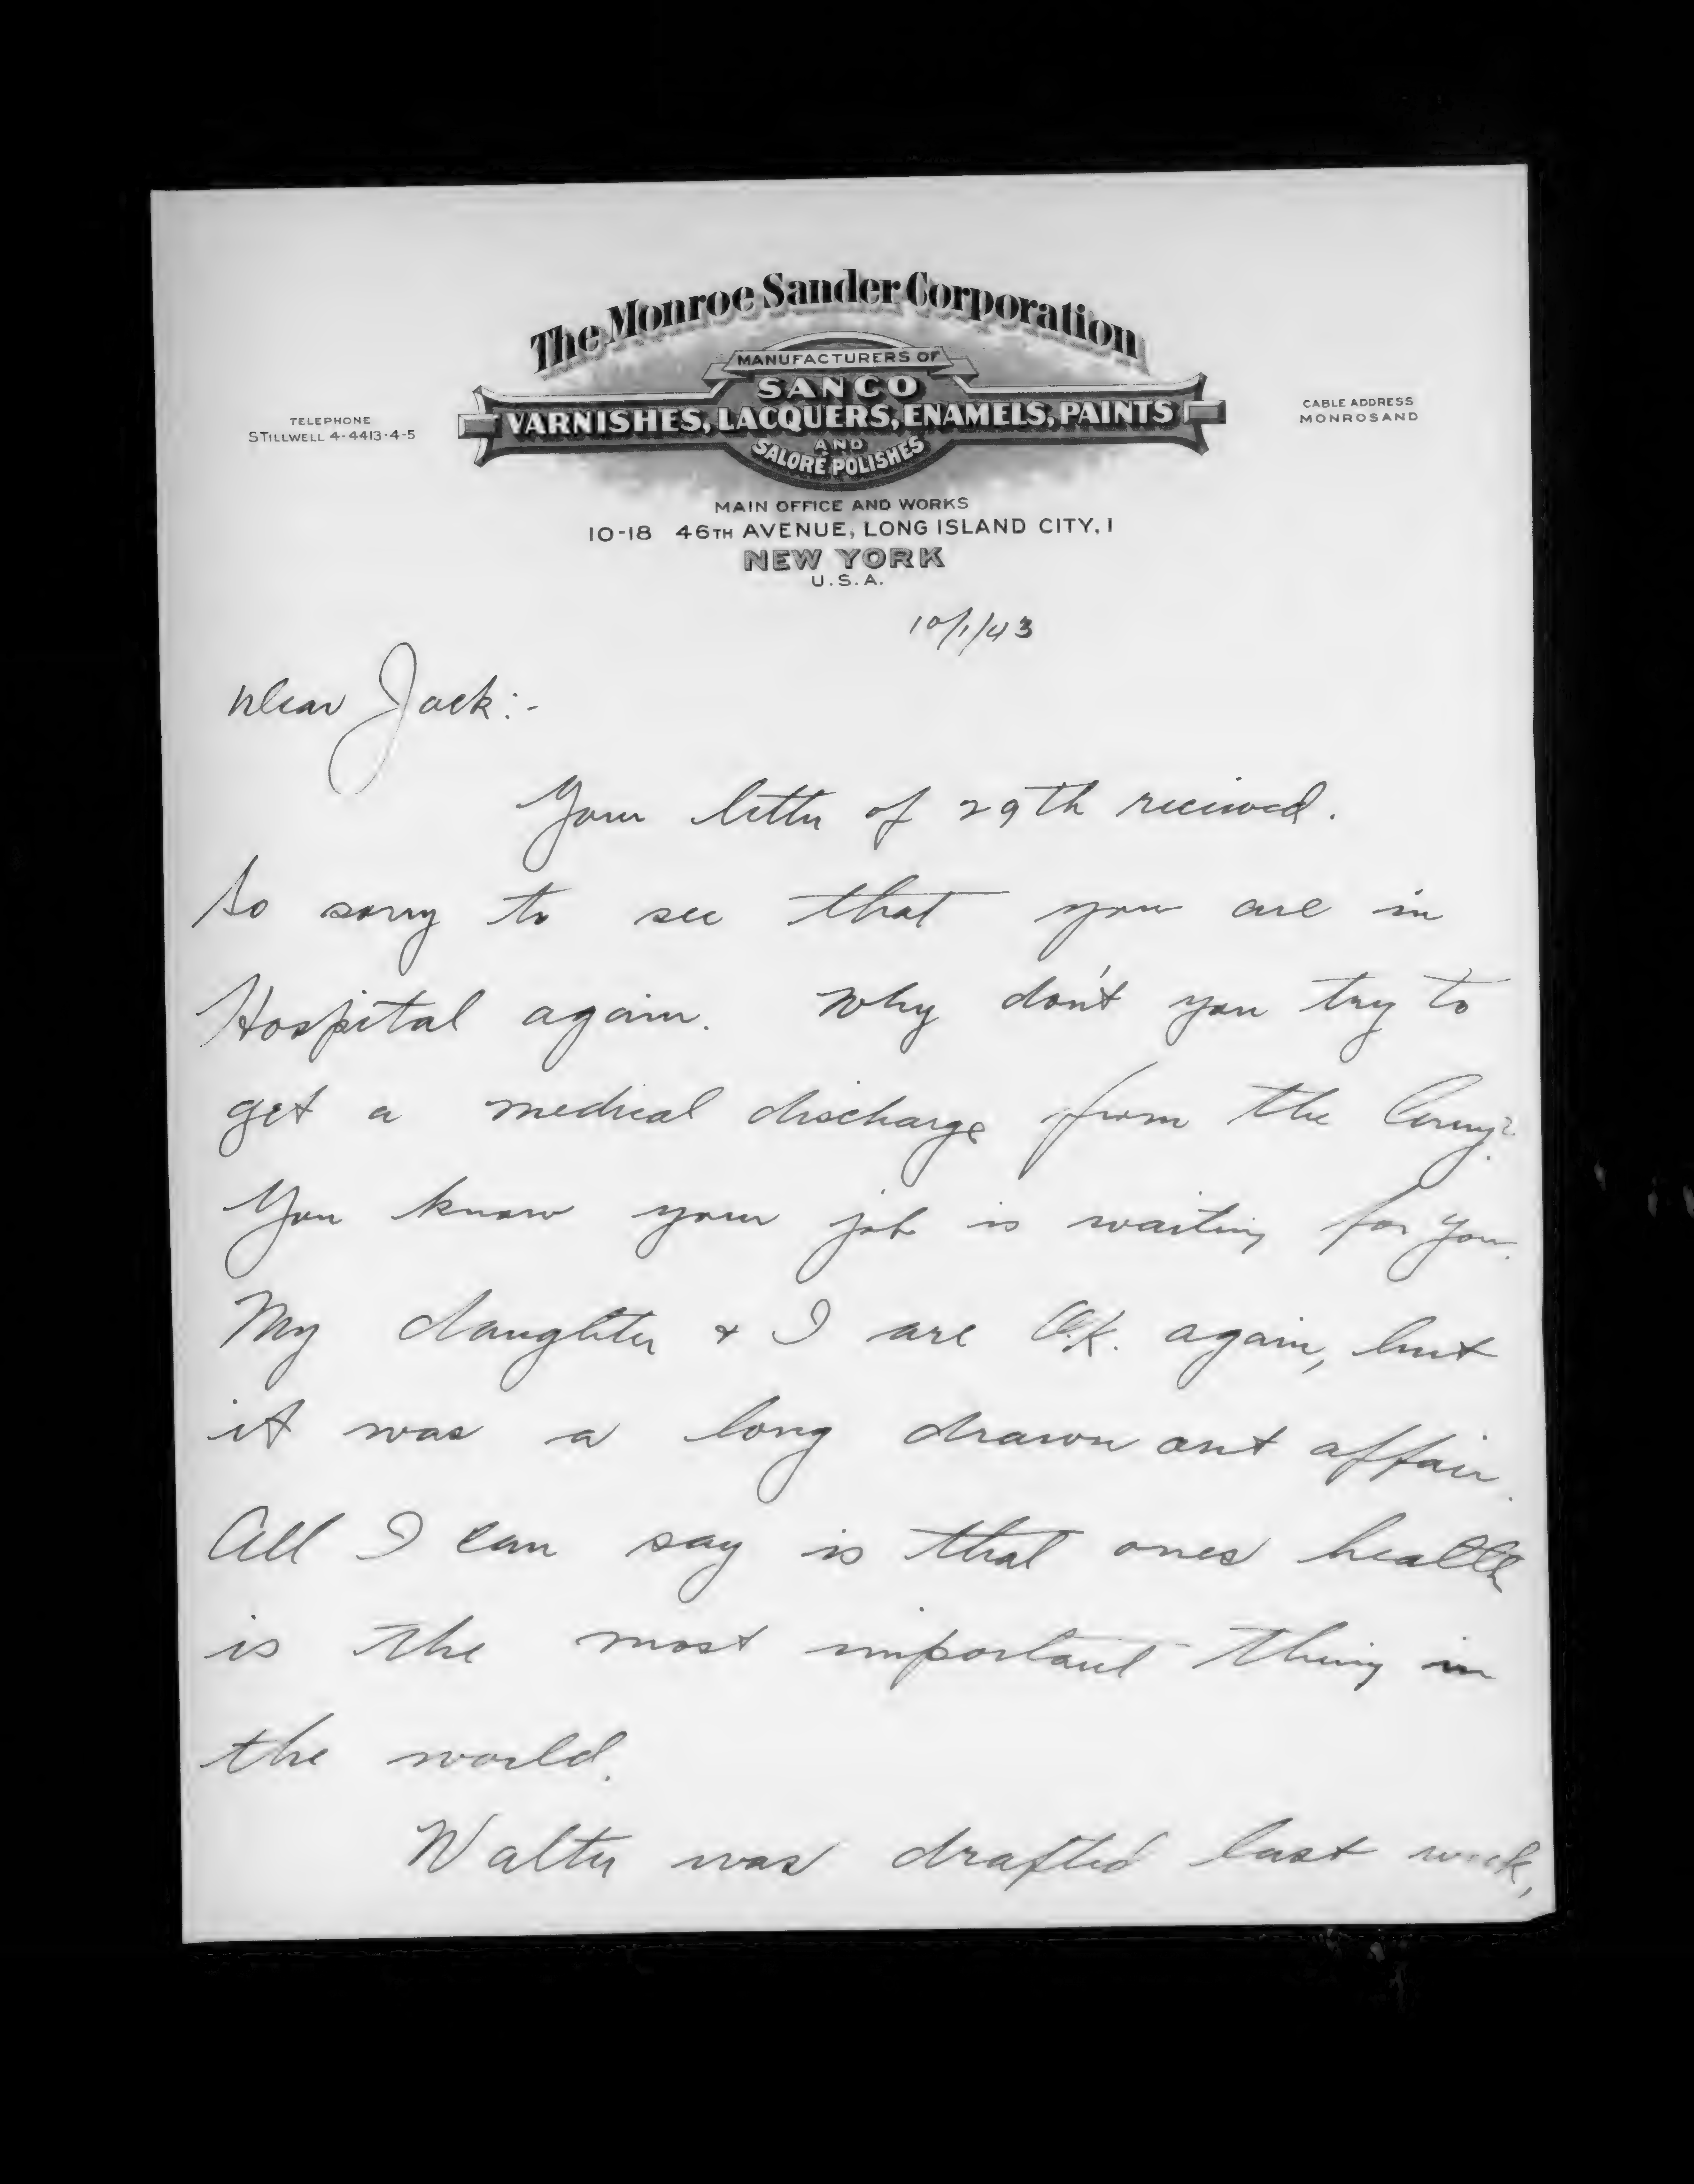 The Monroe Sander Corporation
MANUFACTURERS OF
SANCO
VARNISHES, LACQUERS, ENAMELS, PAINTS
AND
SALORÉ POLISHES
TELEPHONE
STILLWELL 4-4413-4-5
CABLE ADDRESS
MONROSAND
MAIN OFFICE AND WORKS
10-18 46TH AVENUE, LONG ISLAND CITY, 1
NEW YORK
U.S.A.
10/1/43
Dear Jack:-
Your letter of 29th received.
So sorry to see that you are in
Hospital again. Why don't you try to
get a medical discharge from the Army?
You know your job is waiting for you.
My daughter + I are O.K. again, but
it was a long drawn out affair.
All I can say is that ones health
is the most important thing in
the world.
Walter was drafted last week,